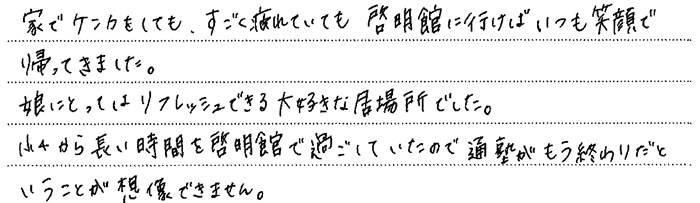 家でケンカをしても、すごく疲れていても 啓明館に行けばいつも笑顔で
帰ってきました。
娘にとってはリフレッシュできる大好きな居場所でした。
小4から長い時間を啓明館で過ごしていたので通塾がもう終わりだと
いうことが想像できません。